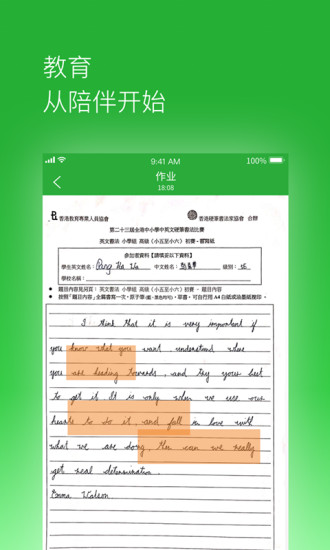 教育
从陪伴开始
9:41 AM
100%
作业
18:08
香港教育專業人員協會
香港硬筆書法家協會 合辦
第二十三屆全港中小學中英文硬筆書法比賽
英文書法 小學組 高級（小五至小六） 初賽 - 書寫紙
參加者資料【請填妥以下資料】
學生英文姓名： Pang Ka Wa 中文姓名： 級別：
學校名稱：
● 題目內容見另頁： 英文書法 小學組 高級（小五至小六） 初賽 - 題目內容
I think that it is very important if
you know what you want, understand where
you are heading towards, and try your best
to get it. It is only when we use our
hearts to do it, and fall in love with
what we are doing, then can we really
get real determination.
Emma Watson